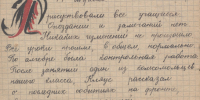 Присутствовали все учащиеся.
Опозданий и замечаний нет.
Никаких изменений не произошло.
Все уроки прошли, в общем, нормально.
По алгебре была контрольная работа.
После занятий один из комсомольцев
нашего класса, рассказал
о последних событиях на фронте,